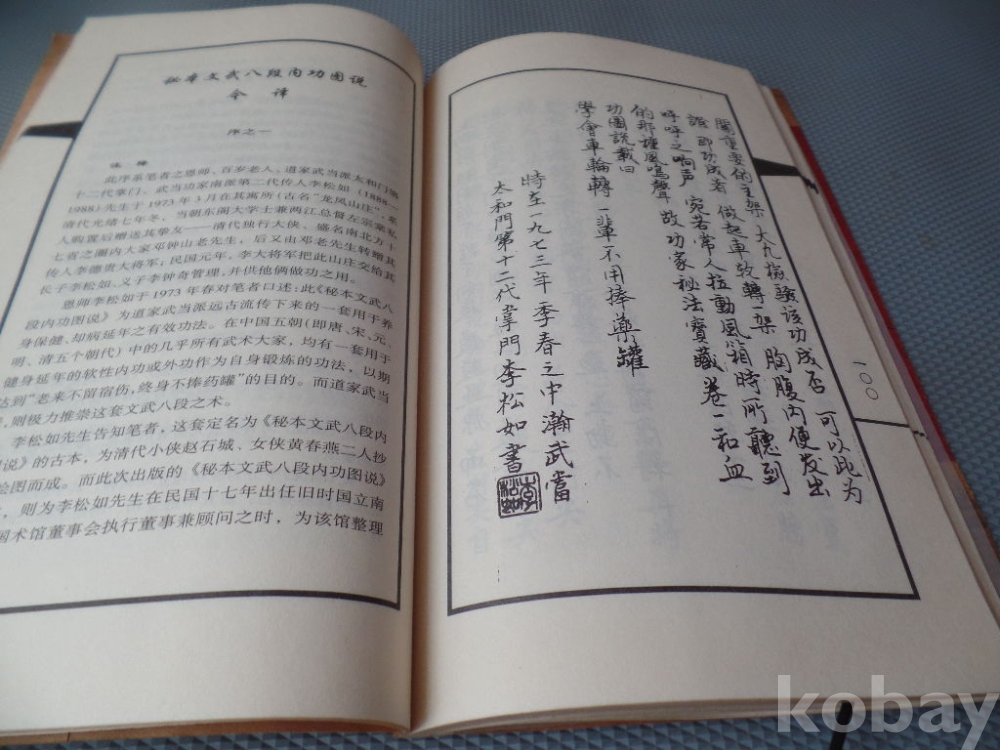 秘本文武八段内功图说
今译
序之一
注释
此序系笔者之恩师、百岁老人、道家武当派太和门第
十二代掌门、武当功家南派第二代传人李松如（1888~
1988）先生于1973年3月在其寓所（古名“龙凤山庄”，系
清代光绪七年冬，当朝东阁大学士兼两江总督左宗棠私
人购置后赠送其挚友——清代独行大侠、盛名南北方十
七省之澜内大家邓钟山老先生，后又由邓老先生转赠其
传人李德贵大将军，民国元年，李大将军把此山庄交给其
长子李松如、义子李钟奇管理，并供他俩做功之用。
恩师李松如于1973年春对笔者口述：此《秘本文武八
段内功图说》为道家武当派远古流传下来的一套用于养
身保健、却病延年之有效功法。在中国五朝（即唐、宋、元、
明、清五个朝代）中的几乎所有武术大家，均有一套用于
健身延年的软性内功或外功作为自身锻炼的功法，以期
达到“老来不留宿伤，终身不捧药罐”的目的。而道家武当
，则极力推崇这套文武八段之术。
李松如先生告知笔者，这套定名为《秘本文武八段内
图说》的古本，为清代小侠赵石城、女侠黄春燕二人抄
绘图而成。而此次出版的《秘本文武八段内功图说》
，则为李松如先生在民国十七年出任旧时国立南
国术馆董事会执行董事兼顾问之时，为该馆整理
一〇〇
闖重要的主架 大凡檢驗该功成否 可以此为
證 即功成者 做起車敉轉架 胸腹内便发出
呼呼之响声 宛若常人拉動風箱時所聽到
的那種風鳴聲 故功家秘法寶藏卷一和血
功圖説載曰
學會車輪轉 一輩不用捧藥罐
時在一九七三年季春之中瀚武當
太和門第十二代掌門李松如書
kobay